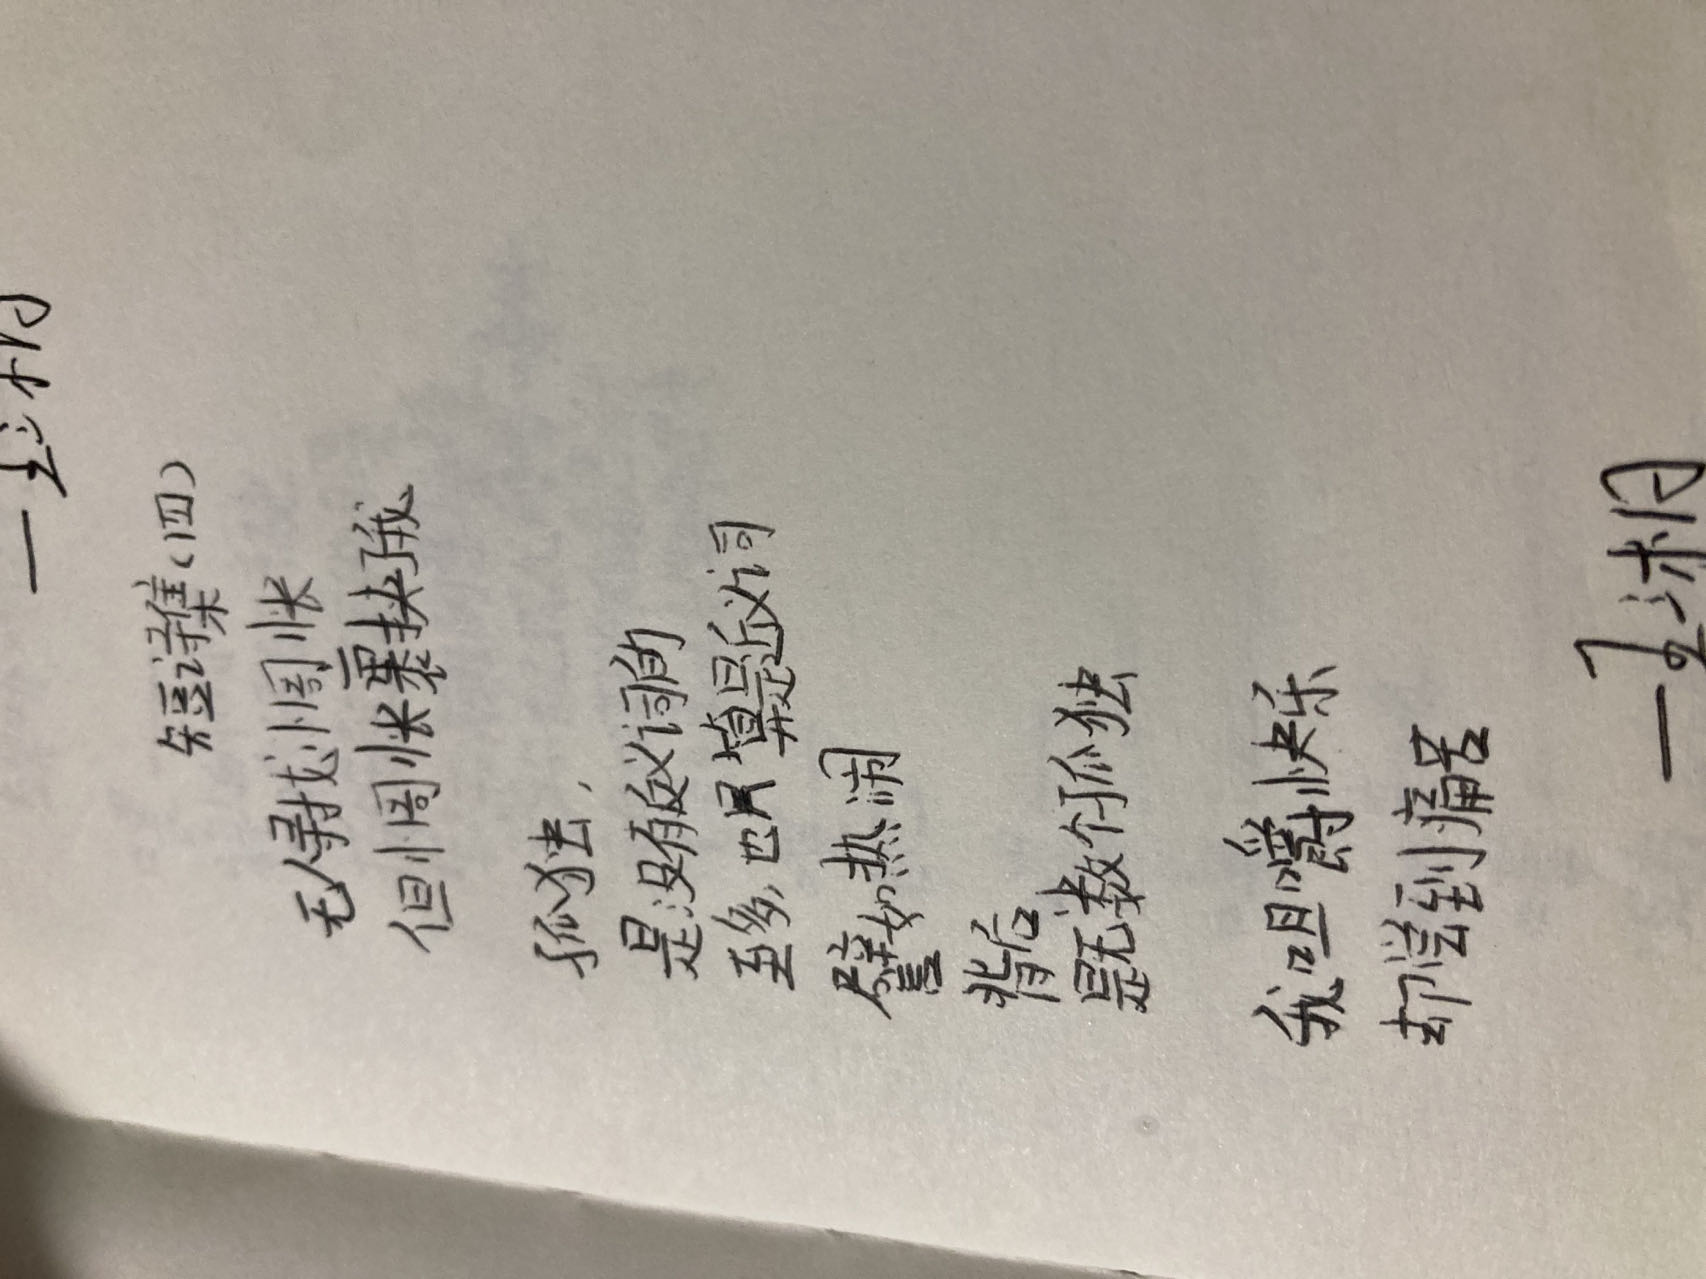 —王湘
短诗集(四)
无人寻找惆怅
但惆怅裹挟了我
孤独,
是没有反义词的
至多,也只算是近义词
譬如热闹
背后
是无数个孤独
我咀嚼快乐
却尝到痛苦
—王湘